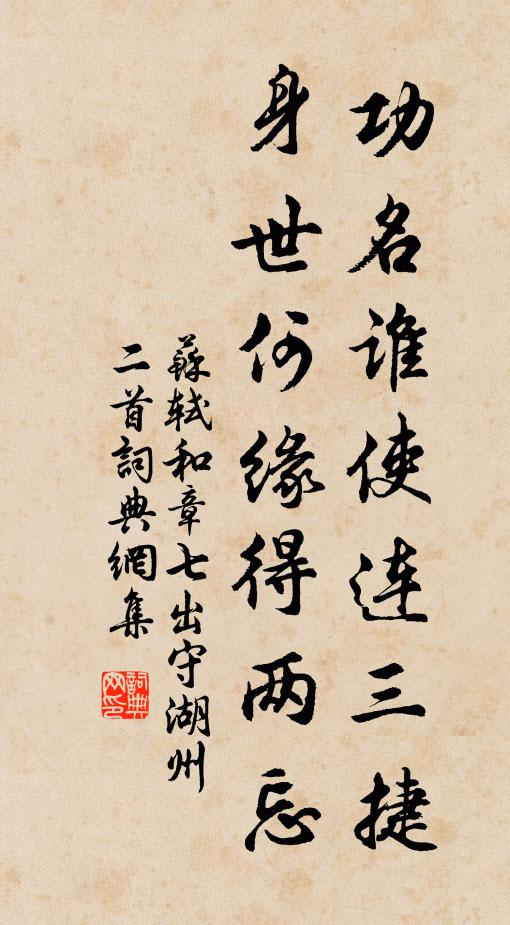 功名谁使连三捷
身世何缘得两忘
蘇軾和章七出守湖州
二首詞典網集
詞典網印